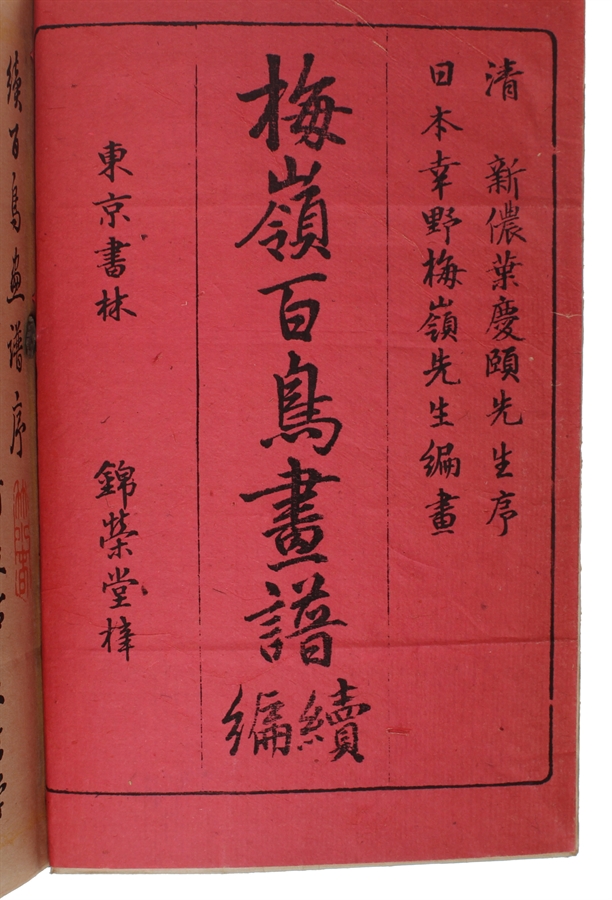 清　新儂葉慶頤先生序
日本幸野梅嶺先生編畫
梅嶺百鳥畫譜
續編
東京書林　錦榮堂梓
續百鳥畫譜序